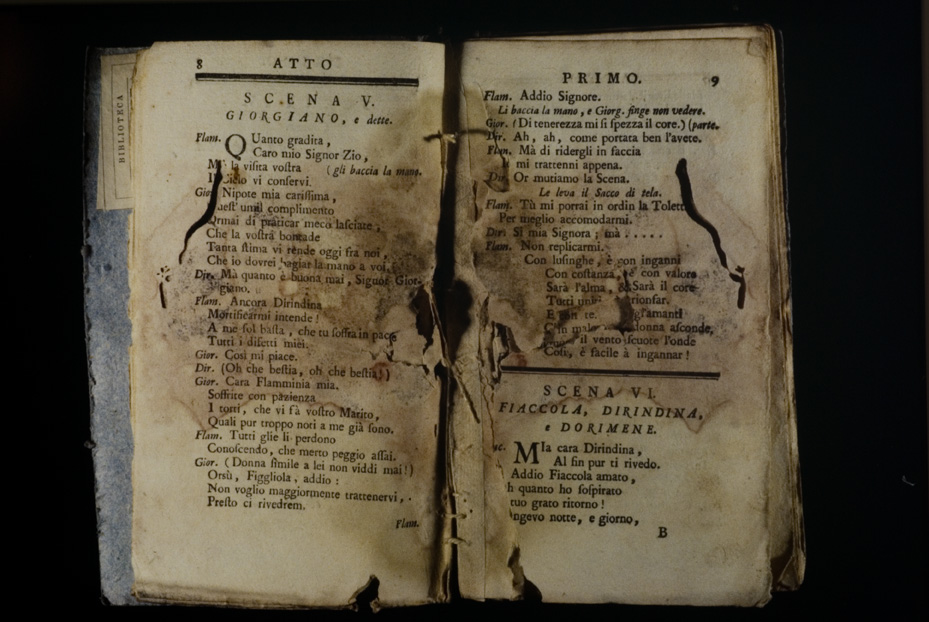 BIBLIOTECA
8 ATTO
SCENA V.
GIORGIANO, e dette.
Flam. QUanto gradita,
Caro mio Signor Zio,
la visita vostra (gli bacia la mano.
vi conservi.
Nipote mia carissima,
umil complimento
Ormai di praticar meco lasciate,
Che la vostra bontade
Tanta stima vi rende oggi fra noi,
Che io dovrei baciar la mano a voi.
Dir. Mà quanto è buona mai, Signor Gior-
giano.
Flam. Ancora Dirindina
Mortificarmi intende!
A me sol basta, che tu soffra in pace
Tutti i difetti miei.
Gior. Così mi piace.
Dir. (Oh che bestia, oh che bestia!)
Gior. Cara Flamminia mia.
Soffrite con pazienza
I torti, che vi fà vostro Marito,
Quali pur troppo noti a me già sono.
Flam. Tutti glie li perdono
Conoscendo, che merto peggio assai.
Gior. (Donna simile a lei non viddi mai!)
Orsù, Figgliola, addio:
Non voglio maggiormente trattenervi,
Presto ci rivedrem.
Flam.
PRIMO. 9
Flam. Addio Signore.
Li baccia la mano, e Giorg. finge non vedere.
Gior. (Di tenerezza mi si spezza il core.) (parte.
Dir. Ah, ah, come portata ben l'avete.
Flam. Mà di ridergli in faccia
mi trattenni appena.
Dir. Or mutiamo la Scena.
Le leva il Sacco di tela.
Flam. Tù mi porrai in ordin la
Per meglio accomodarmi.
Dir. Sì mia Signora; mà.....
Flam. Non replicarmi.
Con lusinghe, e con inganni
Con costanza, e con valore
Sarà l'alma, Sarà il core
Tutti
te.
donna asconde,
il vento scuote l'onde
Così, è facile à ingannar!
SCENA VI.
FIACCOLA, DIRINDINA,
e DORIMENE.
MIa cara Dirindina,
Al fin pur ti rivedo.
Addio Fiaccola amato,
quanto ho sospirato
tuo grato ritorno!
notte, e giorno,
B